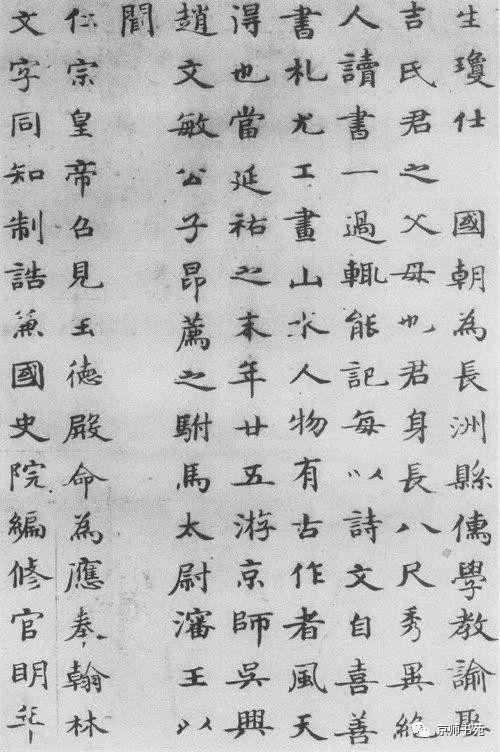 生瓊仕　國朝為長洲縣儒學教諭
吉氏君之父母也君身長八尺秀異絶
人讀書一過輒能記每以詩文自喜善
書札尤工畫山水人物有古作者風天
得也當延祐之末年廿五游京師吳興
趙文敏公子昂薦之駙馬太尉瀋王以
聞
仁宗皇帝召見玉德殿命為應奉翰林
文字同知制誥兼國史院編修官明年
京师书苑